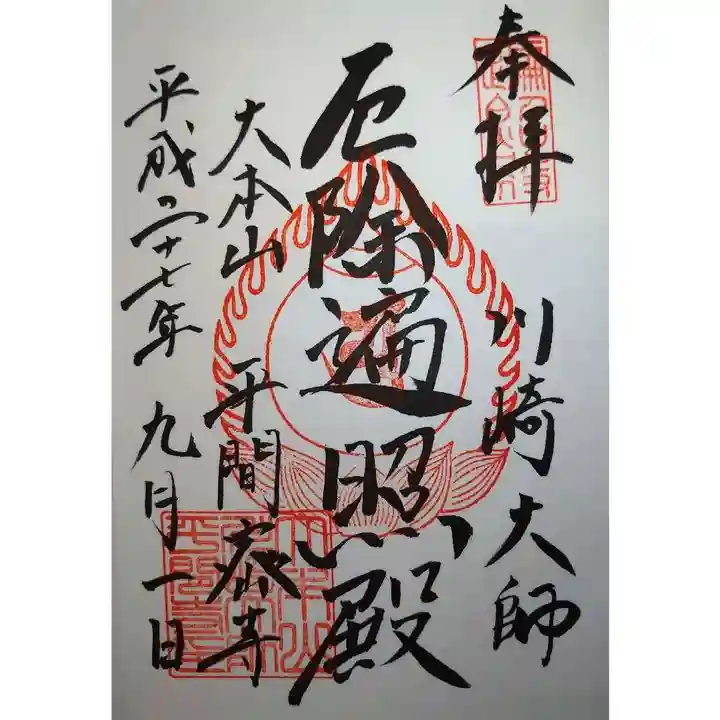 奉拝
川崎大師
厄除遍照殿
大本山 平間寺
平成二十七年 九月一日